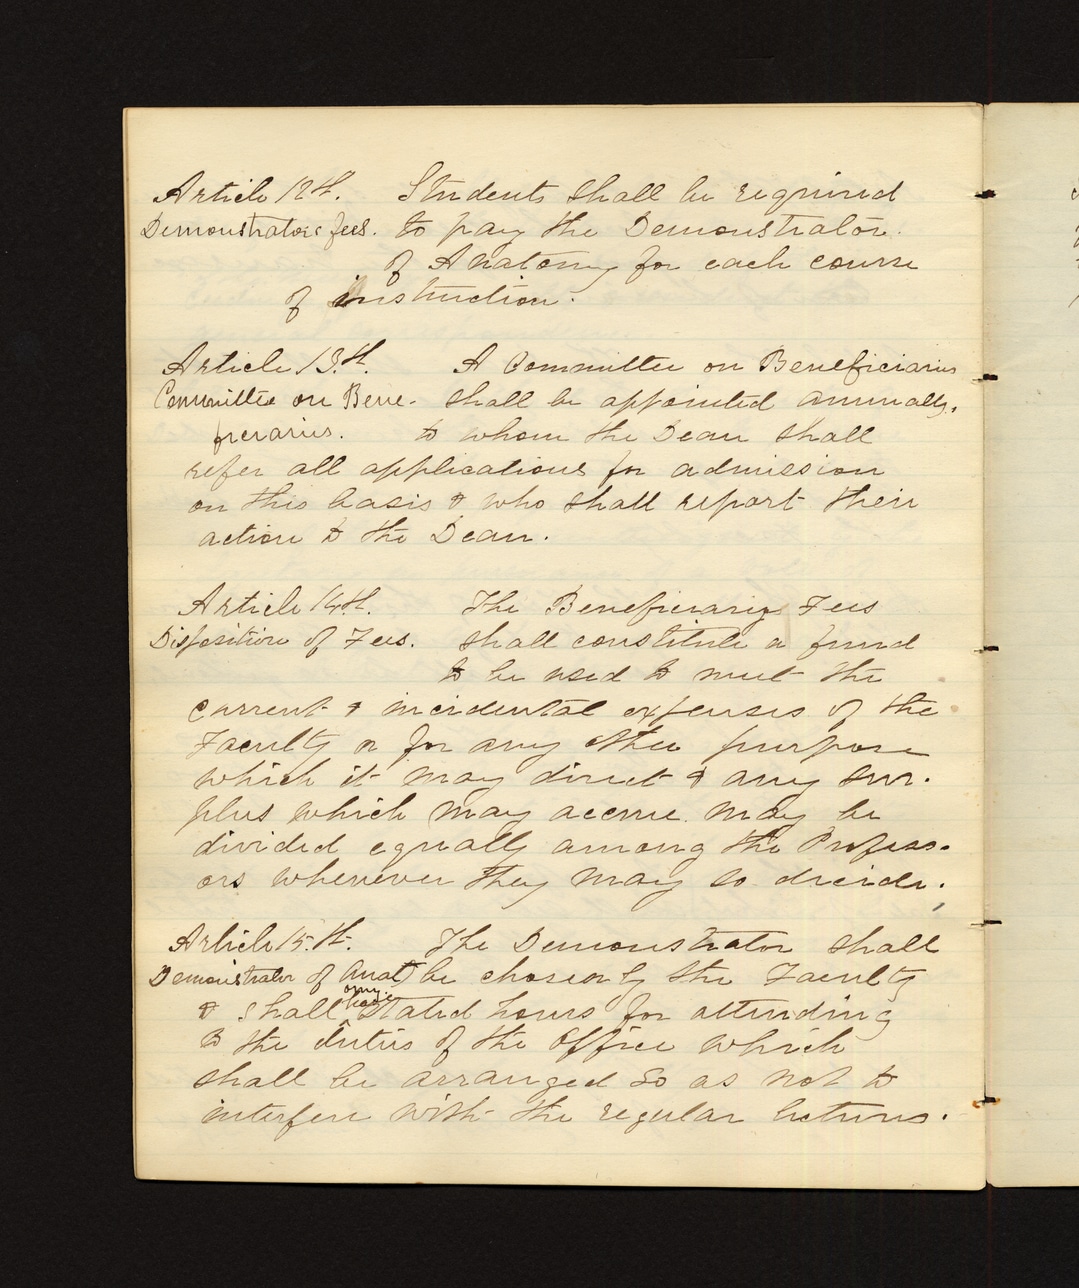 Article 12th. Students shall be required
Demonstrators fees. to pay the Demonstrator.
of Anatomy for each course
of instruction.
Article 13th. A Committee on Beneficiaries
Committee on Bene- shall be appointed annually.
ficiaries. to whom the Dean shall
refer all applications for admission
on this basis & who shall report their
action to the Dean.
Article 14th. The Beneficiary Fees
Disposition of Fees. shall constitute a fund
to be used to meet the
current & incidental expenses of the
Faculty or for any other purpose
which it may direct & any sur-
plus which may accrue may be
divided equally among the Profess-
ors whenever they may so decide.
Article 15th. The Demonstrator shall
Demonstrator of Anat be chosen by the Faculty
omy
& shall have stated hours for attending
to the duties of the office which
shall be arranged so as not to
interfere with the regular lectures.